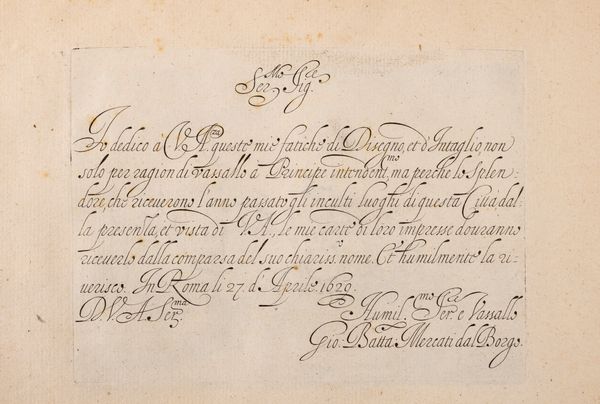 Ser.mo Sig.re
Io dedico à V. A. queste mie fatiche di Disegno, et d'Intaglio, non
solo per ragion di vassallo à Principe intendent.mo, ma perche lo splen-
dore, che riceverono l'anno passato gli inculti luoghi di questa Città dal-
la presenza, et vista di V.A., le mie carte di loro impresse dovranno
riceverlo dalla comparsa del suo chiariss.o nome. Et humilmente la ri-
verisco. In Roma li 27. d. Aprile. 1629.
D. V. A. Ser.ma
Humil.mo Ser.re e Vassallo
Gio. Batta. Mercati dal Borgo.